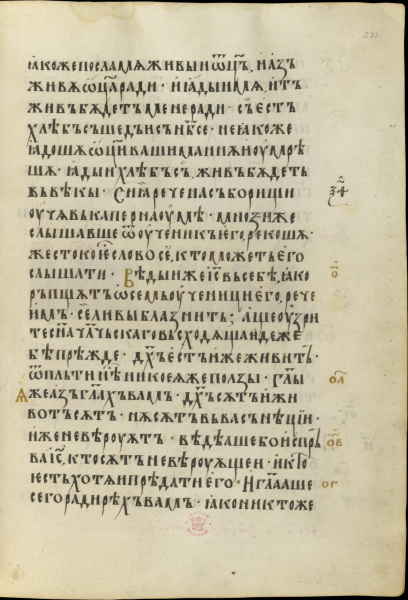 ꙗкожепосламѧживыиѿц҃ъ, иазъ
живѫѡц҃аради · иꙗдыимѧ, итъ
живъбѫдетъменеради · съестъ
хлѣбъсъшедыисън҃бсе · неꙗкоже
ꙗдошѧѡц҃ивашиманнѫиоумрѣ
шѧ · ꙗдыихлѣбъсъ, живъбѫдетъ
вьвѣкы · Сиж҃реченасъборищи
оучѧвькаперънаоумѣ · мноѕиже
слышавшеѿоученикъего, рекошѧ ·
жестокоес҃ловосе, ктоможетъего
слышати · Вѣдыжеіс҃вьсебѣ, ꙗко
ръпщѫтъѡсемъоученициего, рече
имъ · селивыблазнитъ; ащеоузри
тес҃нач҃лчьскаговьсходѧщаидеже
бѣпрѣжде · д҃хъестъижеживитъ ·
ѿплътинѣникоеѧжеползы · Гл҃ы
ѧжеазъгл҃ахъвамъ · д҃хъсѫтъижи
вотъсѫтъ · нѫсѫтъвьвасънѣции ·
иженевѣроуѫтъ · вѣдѣашебоиспръ
ваіс҃, ктосѫтъневѣроуѫщеи · икто
естьхотѧипрѣдатиего · Игл҃ааше
сегорадирѣхъвамъ · ꙗконик̾тоже
221